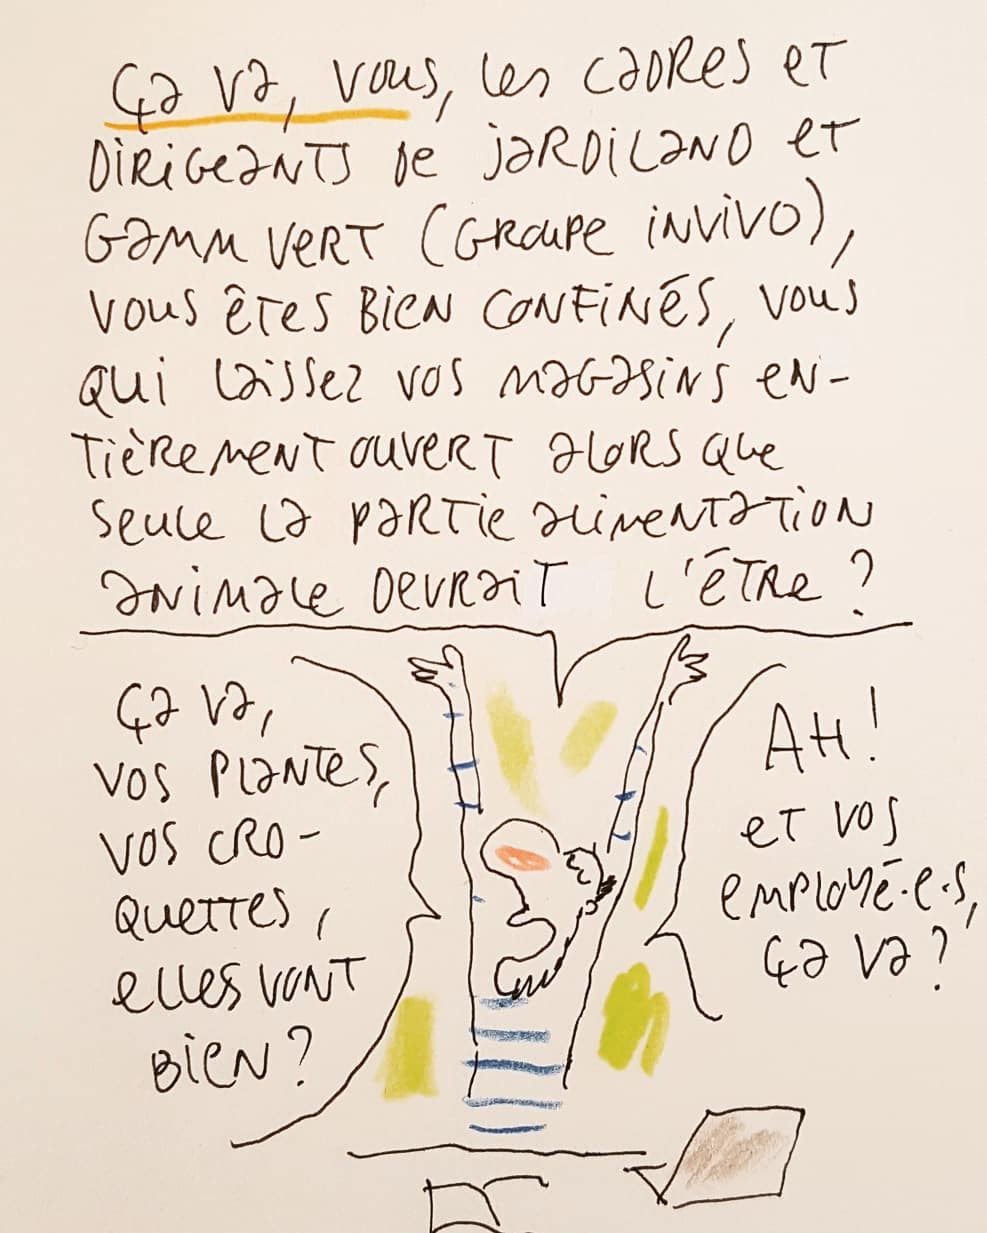 ça va, vous, les cadres et
dirigeants de jardiland et
gamm vert (groupe invivo),
vous êtes bien confinés, vous
qui laissez vos magasins en-
tièrement ouvert alors que
seule la partie alimentation
animale devrait l'être ?
ça va,
vos plantes,
vos cro-
quettes,
elles vont
bien ?
AH !
et vos
employé.e.s,
ça va ?